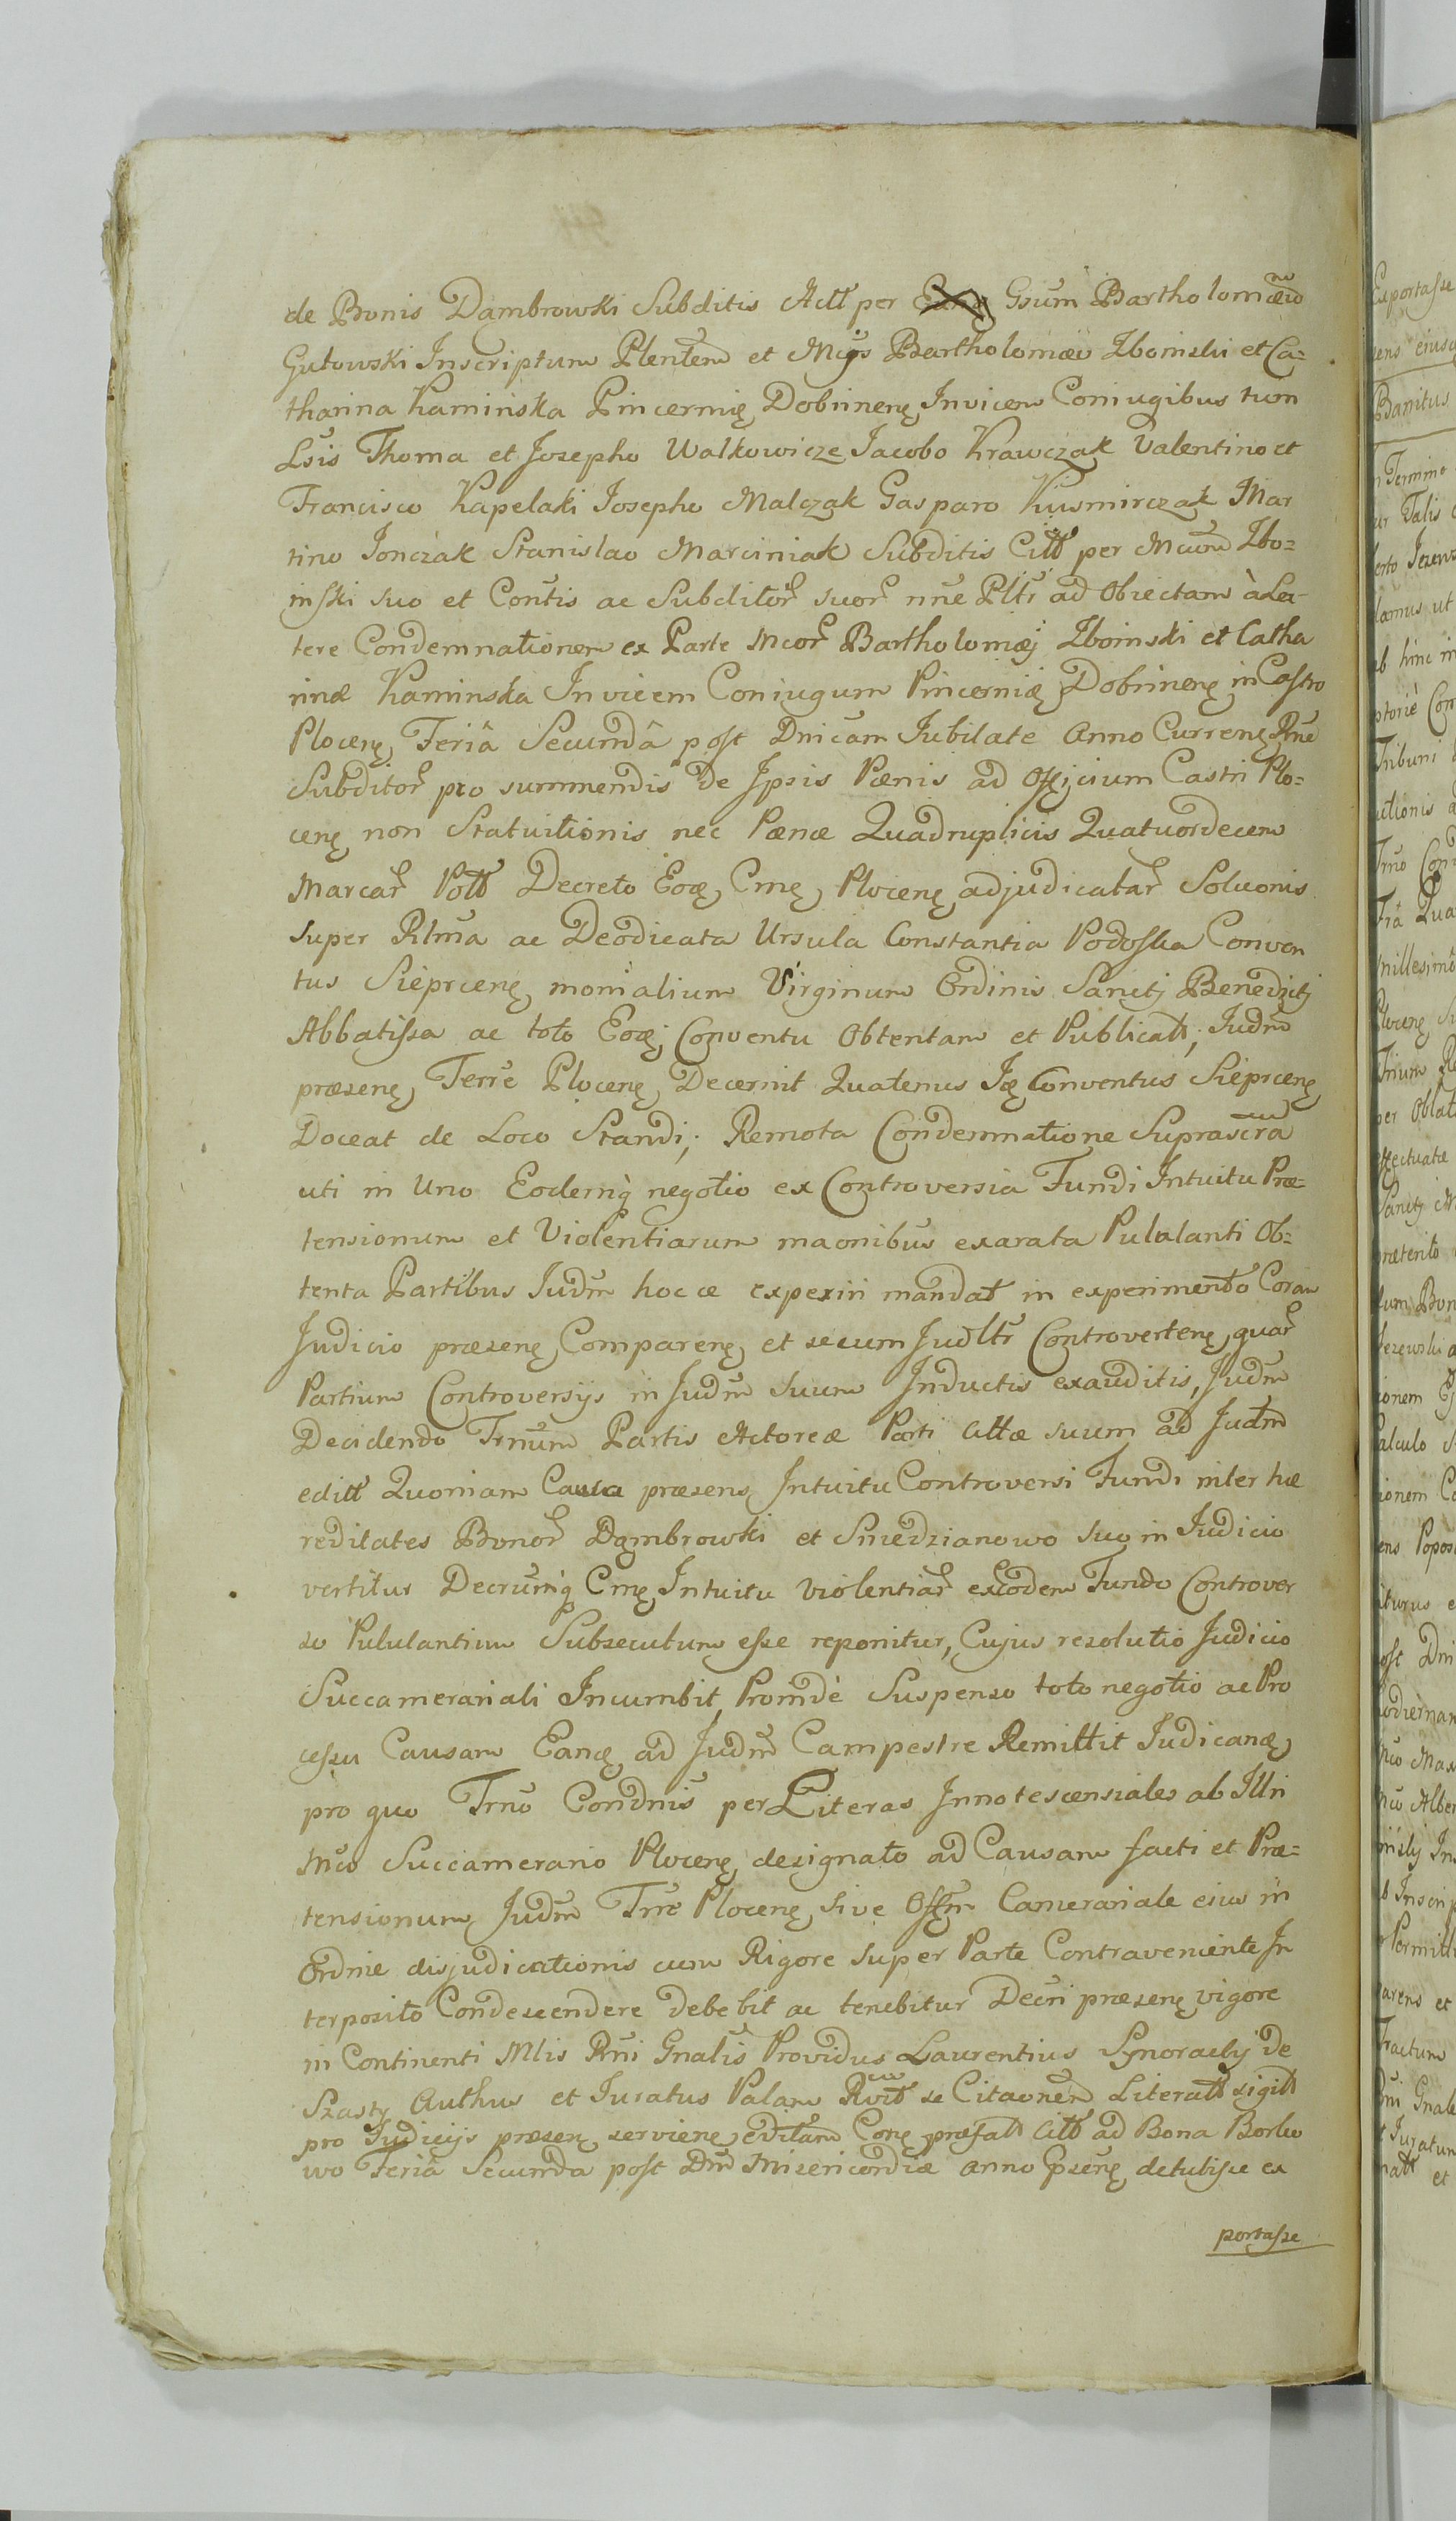 de Bonis Dąmbrowski Subditis Actt per Gsum Bartholomæum
Gutowski Inscriptum Plentem et Mcijs Bartholomæo Zboinski et Ca=
tharina Kaminska Pincernię Dobrinenę Invicem Coniugibus tum
Lsis Thoma et Josepho Walkowicze Iacobo Krawczak Valentino et
Francisco Kapelaki Iosepho Malczak Gasparo Kusmirczak Mar
tino Jonczak Stanislao Marciniak Subditis Citt per Mcum Zbo=
inski suo et Contis ac Subditor suor nne Pltr ad Obiectam à La-
tere Condemnationem ex Parte Mcor Bartholomæj Zboinski et Catha
rinæ Kaminska Invicem Coniugum Pincerniæ Dobrinenę in Castro
Plocenę Feriâ Secundâ post Dnicam Iubilate Anno Currenę Rne
Subditor pro summendis de Ipsis Pænis ad Officium Castri Plo=
cenę non Statuitionis nec Pænæ Quadruplicis Quatuordecem
Marcar Pott Decreto Eoę Cmę Plocenę adjudicatar Soluonis
super Rlma ac Deodicata Ursula Constantia Podoska Conven
tus Sieprcenę monialium Virginum Ordinis Sanctj Benedictj
Abbatissa ac toto Eoę Conventu Obtentam et Publicatt, Iudm
præsenę Terre Plocenę Decernit Quatenus Ię Conventus Sieprcenę
Doceat de Loco Standi; Remota Condemnatione Suprascra
uti in Uno Eodemq negotio ex Controversia Fundi Intuitu Præ=
tensionum et Violentiarum maonibus exarata Pululanti Ob=
tenta Partibus Iudm hocce experiri mandat in experimento Coram
Judicio præsenę Comparenę et secum Judltr Controvertenę quar
Partium Controversijs in Judm suum Inductis exauditis, Judm
Decidendo Trnum Partis Actoreæ Parti Cittæ suum ad Judm
editt Quoniam Causa præsens Intuitu Controversi Fundi inter hæ
reditates Bonor Dąmbrowski et Smedzianowo suo in Iudicio
vertitur Decrumq Cmę Intuitu violentiar ex eodem Fundo Controver
so Pululantium Subsecutum esse reponitur, Cujus resolutio Judicio
Succamerariali Incumbit, Proindè Suspenso toto negotio ac Pro
cessu Causam Eanę ad Judm Campestre Remittit Iudicanę
pro quo Trno Condnis per Literas Innotescensiales ab Illri
Mco Succamerario Plocenę designato ad Causam facti et Præ=
tensionum Judm Trre Plocenę sive Offm Camerariale eius in
Ordine disjudicationis cum Rigore super Parte Contraveniente In
terposito Condescendere debebit ac tenebitur Decri præsenę vigore
in Continenti Mlis Rni Gnalis Providus Laurentius Synoracky de
Szasty Authus et Iuratus Palam Rvit se Citaonem Literatt sigilt
pro Iudicijs præsenę servienę editam Conę præfatt Citt ad Bona Borko
wo Feriâ Secunda post Dm Misericordiæ anno Præsenę detulisse ex
portasse